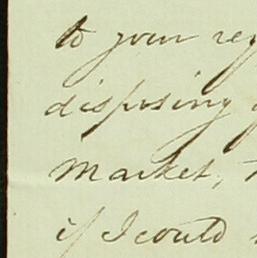 to your
disposing
market,
if I could